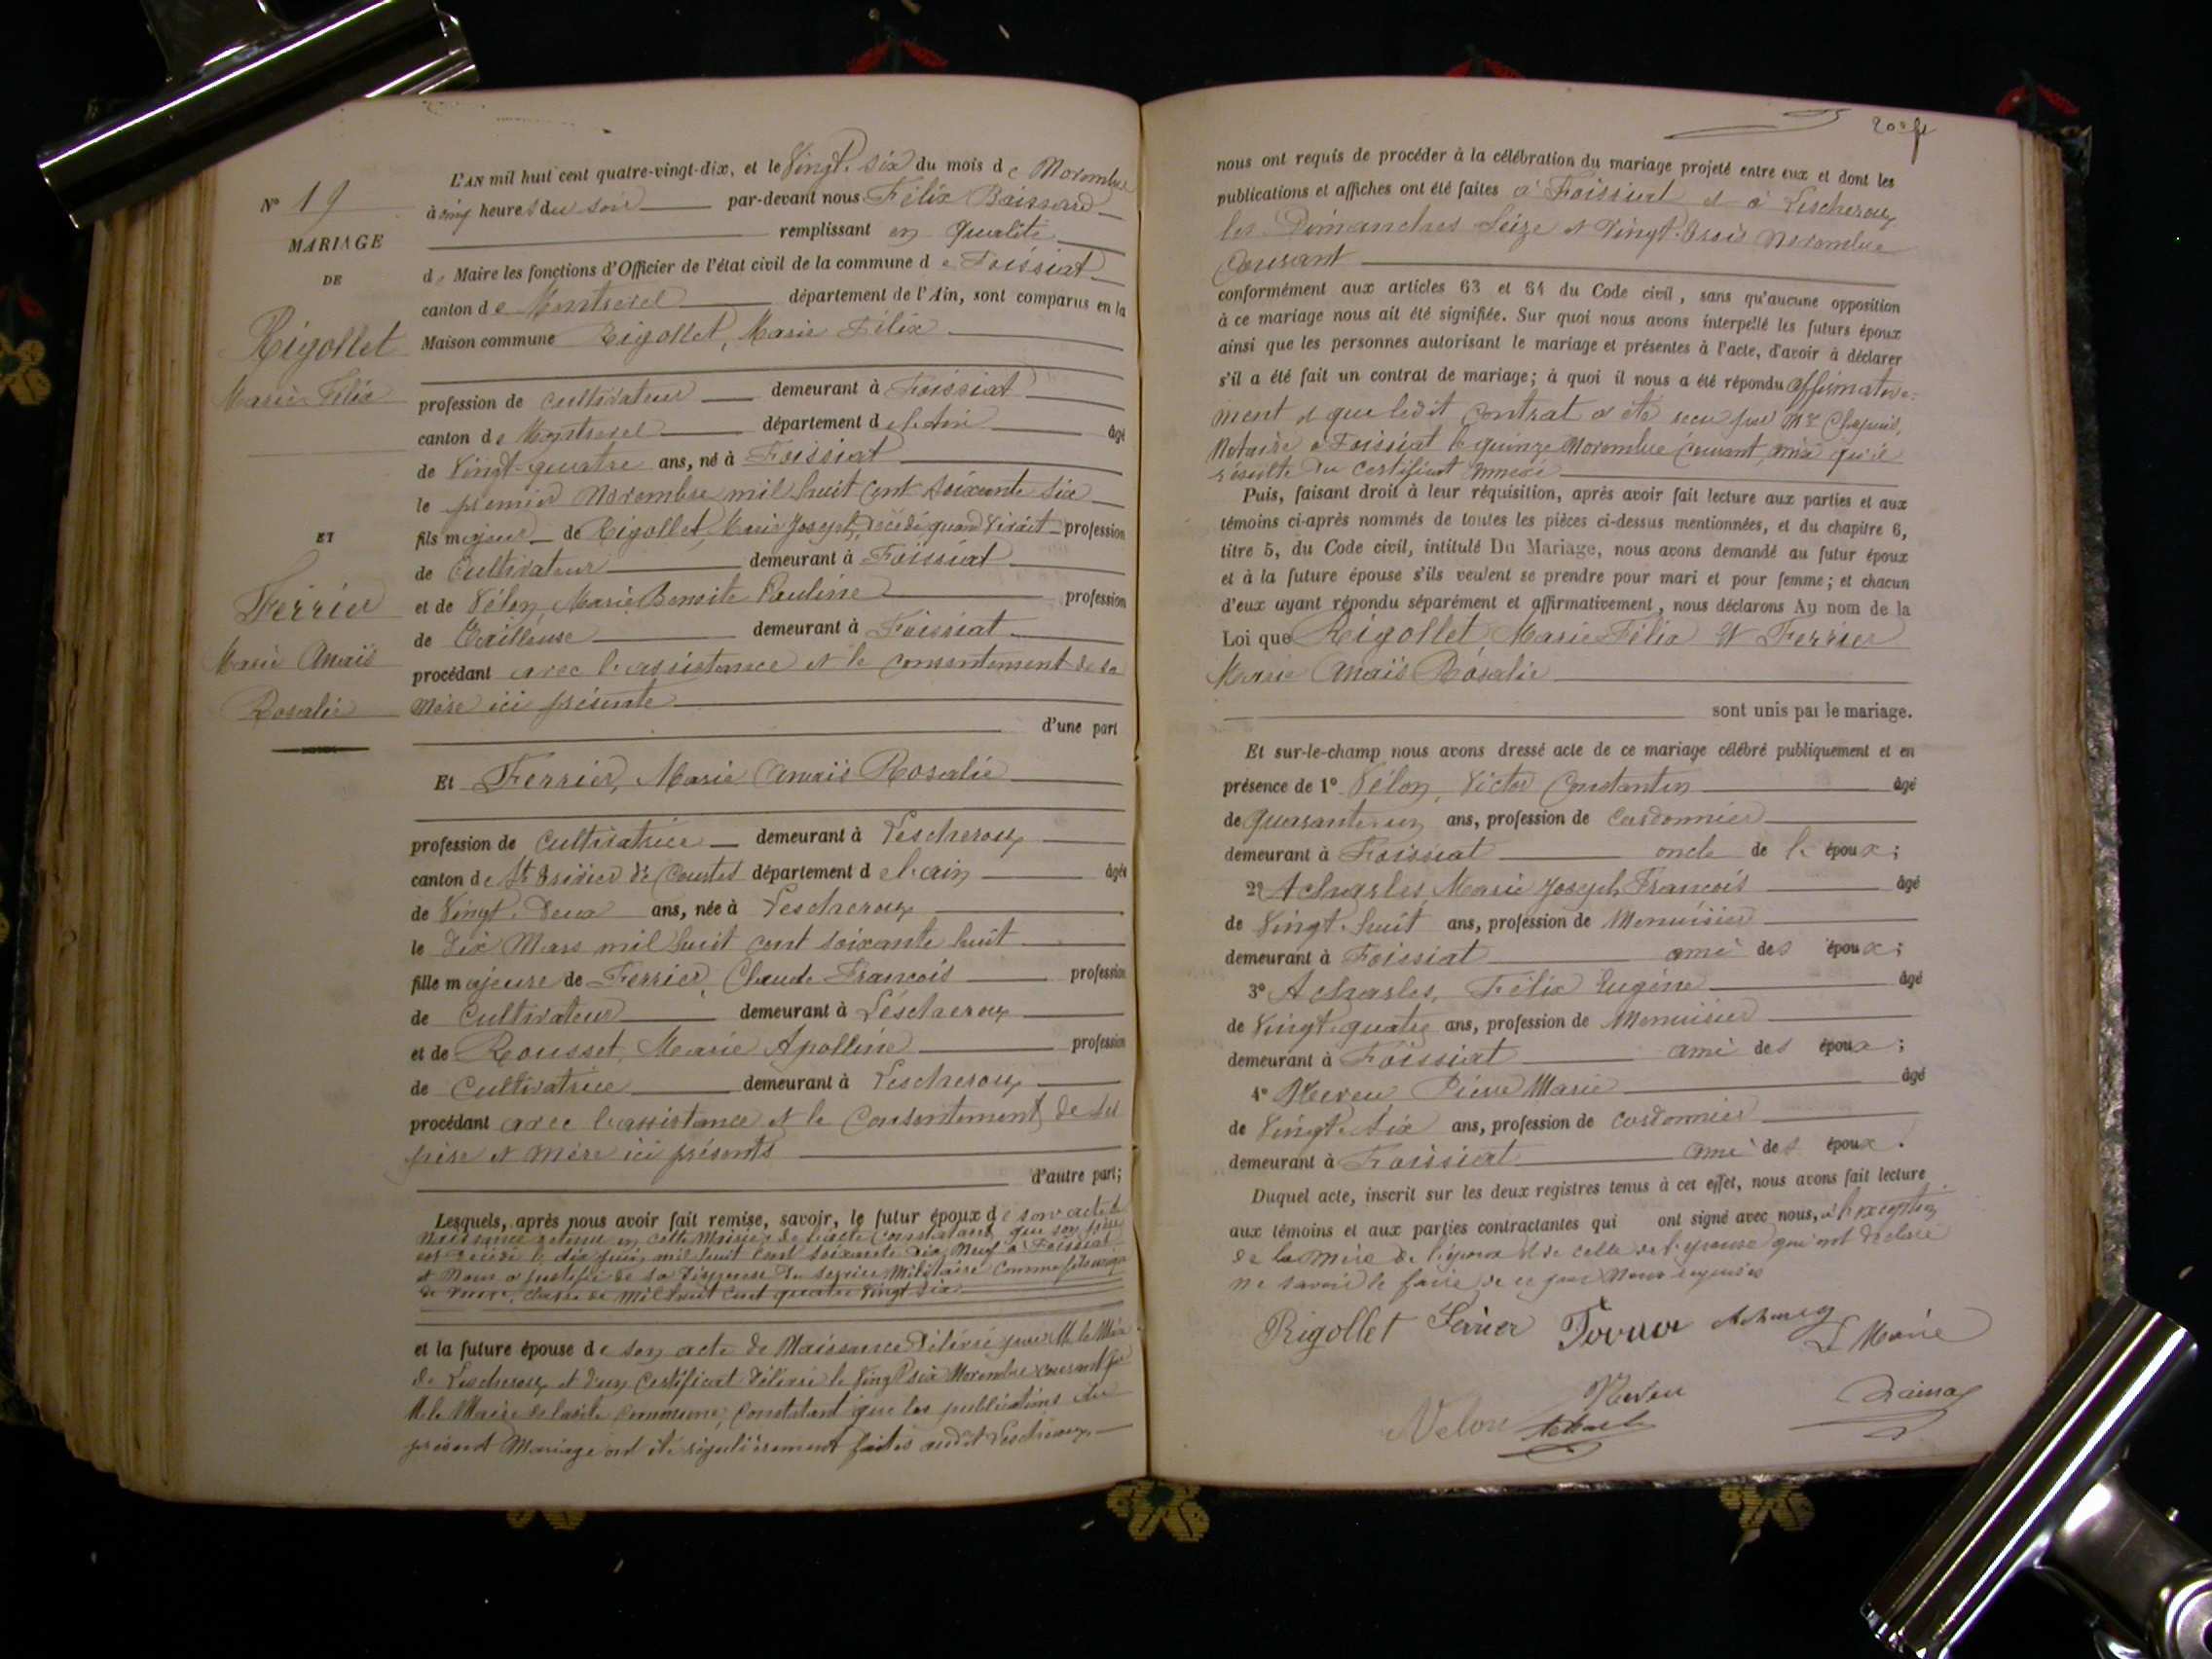 N° 19
MARIAGE
DE
Rigollet
Marie Félix
ET
Ferrier
Marie Anaïs
Rosalie
L'AN mil huit cent quatre-vingt-dix, et le Vingt-six du mois de Novembre
à cinq heures du soir par-devant nous Félix Baissard
remplissant en qualité
de Maire les fonctions d'Officier de l'état civil de la commune de Foissiat
canton de Montrevel département de l'Ain, sont comparus en la
Maison commune Rigollet, Marie Félix
profession de cultivateur demeurant à Foissiat
canton de Montrevel département de l'Ain âgé
de Vingt-quatre ans, né à Foissiat
le premier Novembre mil huit cent soixante six
fils majeur de Rigollet, Marie Joseph, décédé quand vivait profession
de Cultivateur demeurant à Foissiat
et de Vélon, Marie Benoite Pauline profession
de Tailleuse demeurant à Foissiat
procédant avec l'assistance et le consentement de sa
mère ici présente
d'une part
Et Ferrier, Marie Anaïs Rosalie
profession de Cultivatrice demeurant à Lescheroux
canton de St Trivier de Courtes département de l'ain âgée
de Vingt-deux ans, née à Lescheroux
le dix Mars mil huit cent soixante huit
fille majeure de Ferrier, Claude François profession
de Cultivateur demeurant à Léscheroux
et de Rousset, Marie Apolline profession
de Cultivatrice demeurant à Lescheroux
procédant avec l'assistance et le Consentement de ses
père et mère ici présents
d'autre part;
Lesquels, après nous avoir fait remise, savoir, le futur époux de son acte de
Naissance retenu en cette Mairie, de l'acte Constatant que son père
est décédé le dix juin mil huit cent soixante dix Neuf à Foissiat
et Nous a justifié de sa dispense du service Militaire Comme fils unique
de veuve, classe de mil huit cent quatre vingt six
et la future épouse de son acte de Naissance délivré par M. le Maire
de Lescheroux et d'un Certificat délivré le Vingt six Novembre courant par
M. le Maire de ladite Commune, Constatant que les publications du
présent Mariage ont été régulièrement faites audit Lescheroux
nous ont requis de procéder à la célébration du mariage projeté entre eux et dont les
publications et affiches ont été faites à Foissiat et à Lescheroux
les Dimanches Seize et Vingt-trois Novembre
Courant
conformément aux articles 63 et 64 du Code civil, sans qu'aucune opposition
à ce mariage nous ait été signifiée. Sur quoi nous avons interpellé les futurs époux
ainsi que les personnes autorisant le mariage et présentes à l'acte, d'avoir à déclarer
s'il a été fait un contrat de mariage; à quoi il nous a été répondu affirmative-
ment et que ledit Contrat a été reçu par Me
Notaire à Foissiat le quinze Novembre Courant, ainsi qu'il
résulte du Certificat annexé
Puis, faisant droit à leur réquisition, après avoir fait lecture aux parties et aux
témoins ci-après nommés de toutes les pièces ci-dessus mentionnées, et du chapitre 6,
titre 5, du Code civil, intitulé Du Mariage, nous avons demandé au futur époux
et à la future épouse s'ils veulent se prendre pour mari et pour femme; et chacun
d'eux ayant répondu séparément et affirmativement, nous déclarons Au nom de la
Loi que Rigollet, Marie Félix et Ferrier
Marie Anaïs Rosalie
sont unis par le mariage.
Et sur-le-champ nous avons dressé acte de ce mariage célébré publiquement et en
présence de 1° Vélon, Victor Constantin âgé
de Quarante-un ans, profession de Cordonnier
demeurant à Foissiat oncle de l' époux;
2° Acharles, Marie Joseph François âgé
de Vingt-huit ans, profession de Menuisier
demeurant à Foissiat ami des époux;
3° Acharles, Félix Eugène âgé
de Vingt-quatre ans, profession de Menuisier
demeurant à Foissiat ami des époux;
4° Neveu, Pierre Marie âgé
de Vingt-six ans, profession de cordonnier
demeurant à Foissiat ami des époux.
Duquel acte, inscrit sur les deux registres tenus à cet effet, nous avons fait lecture
aux témoins et aux parties contractantes qui ont signé avec nous, à l'exception
de la mère de l'époux et de celle de l'épouse qui ont déclaré
ne savoir le faire de ce par Nous requises
Rigollet Ferrier Ferrier
Le Maire
Neveu
Velon